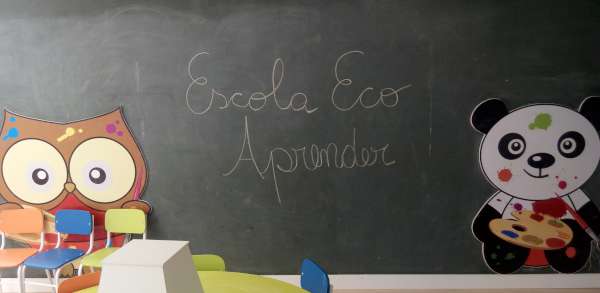 Escola Eco
Aprender